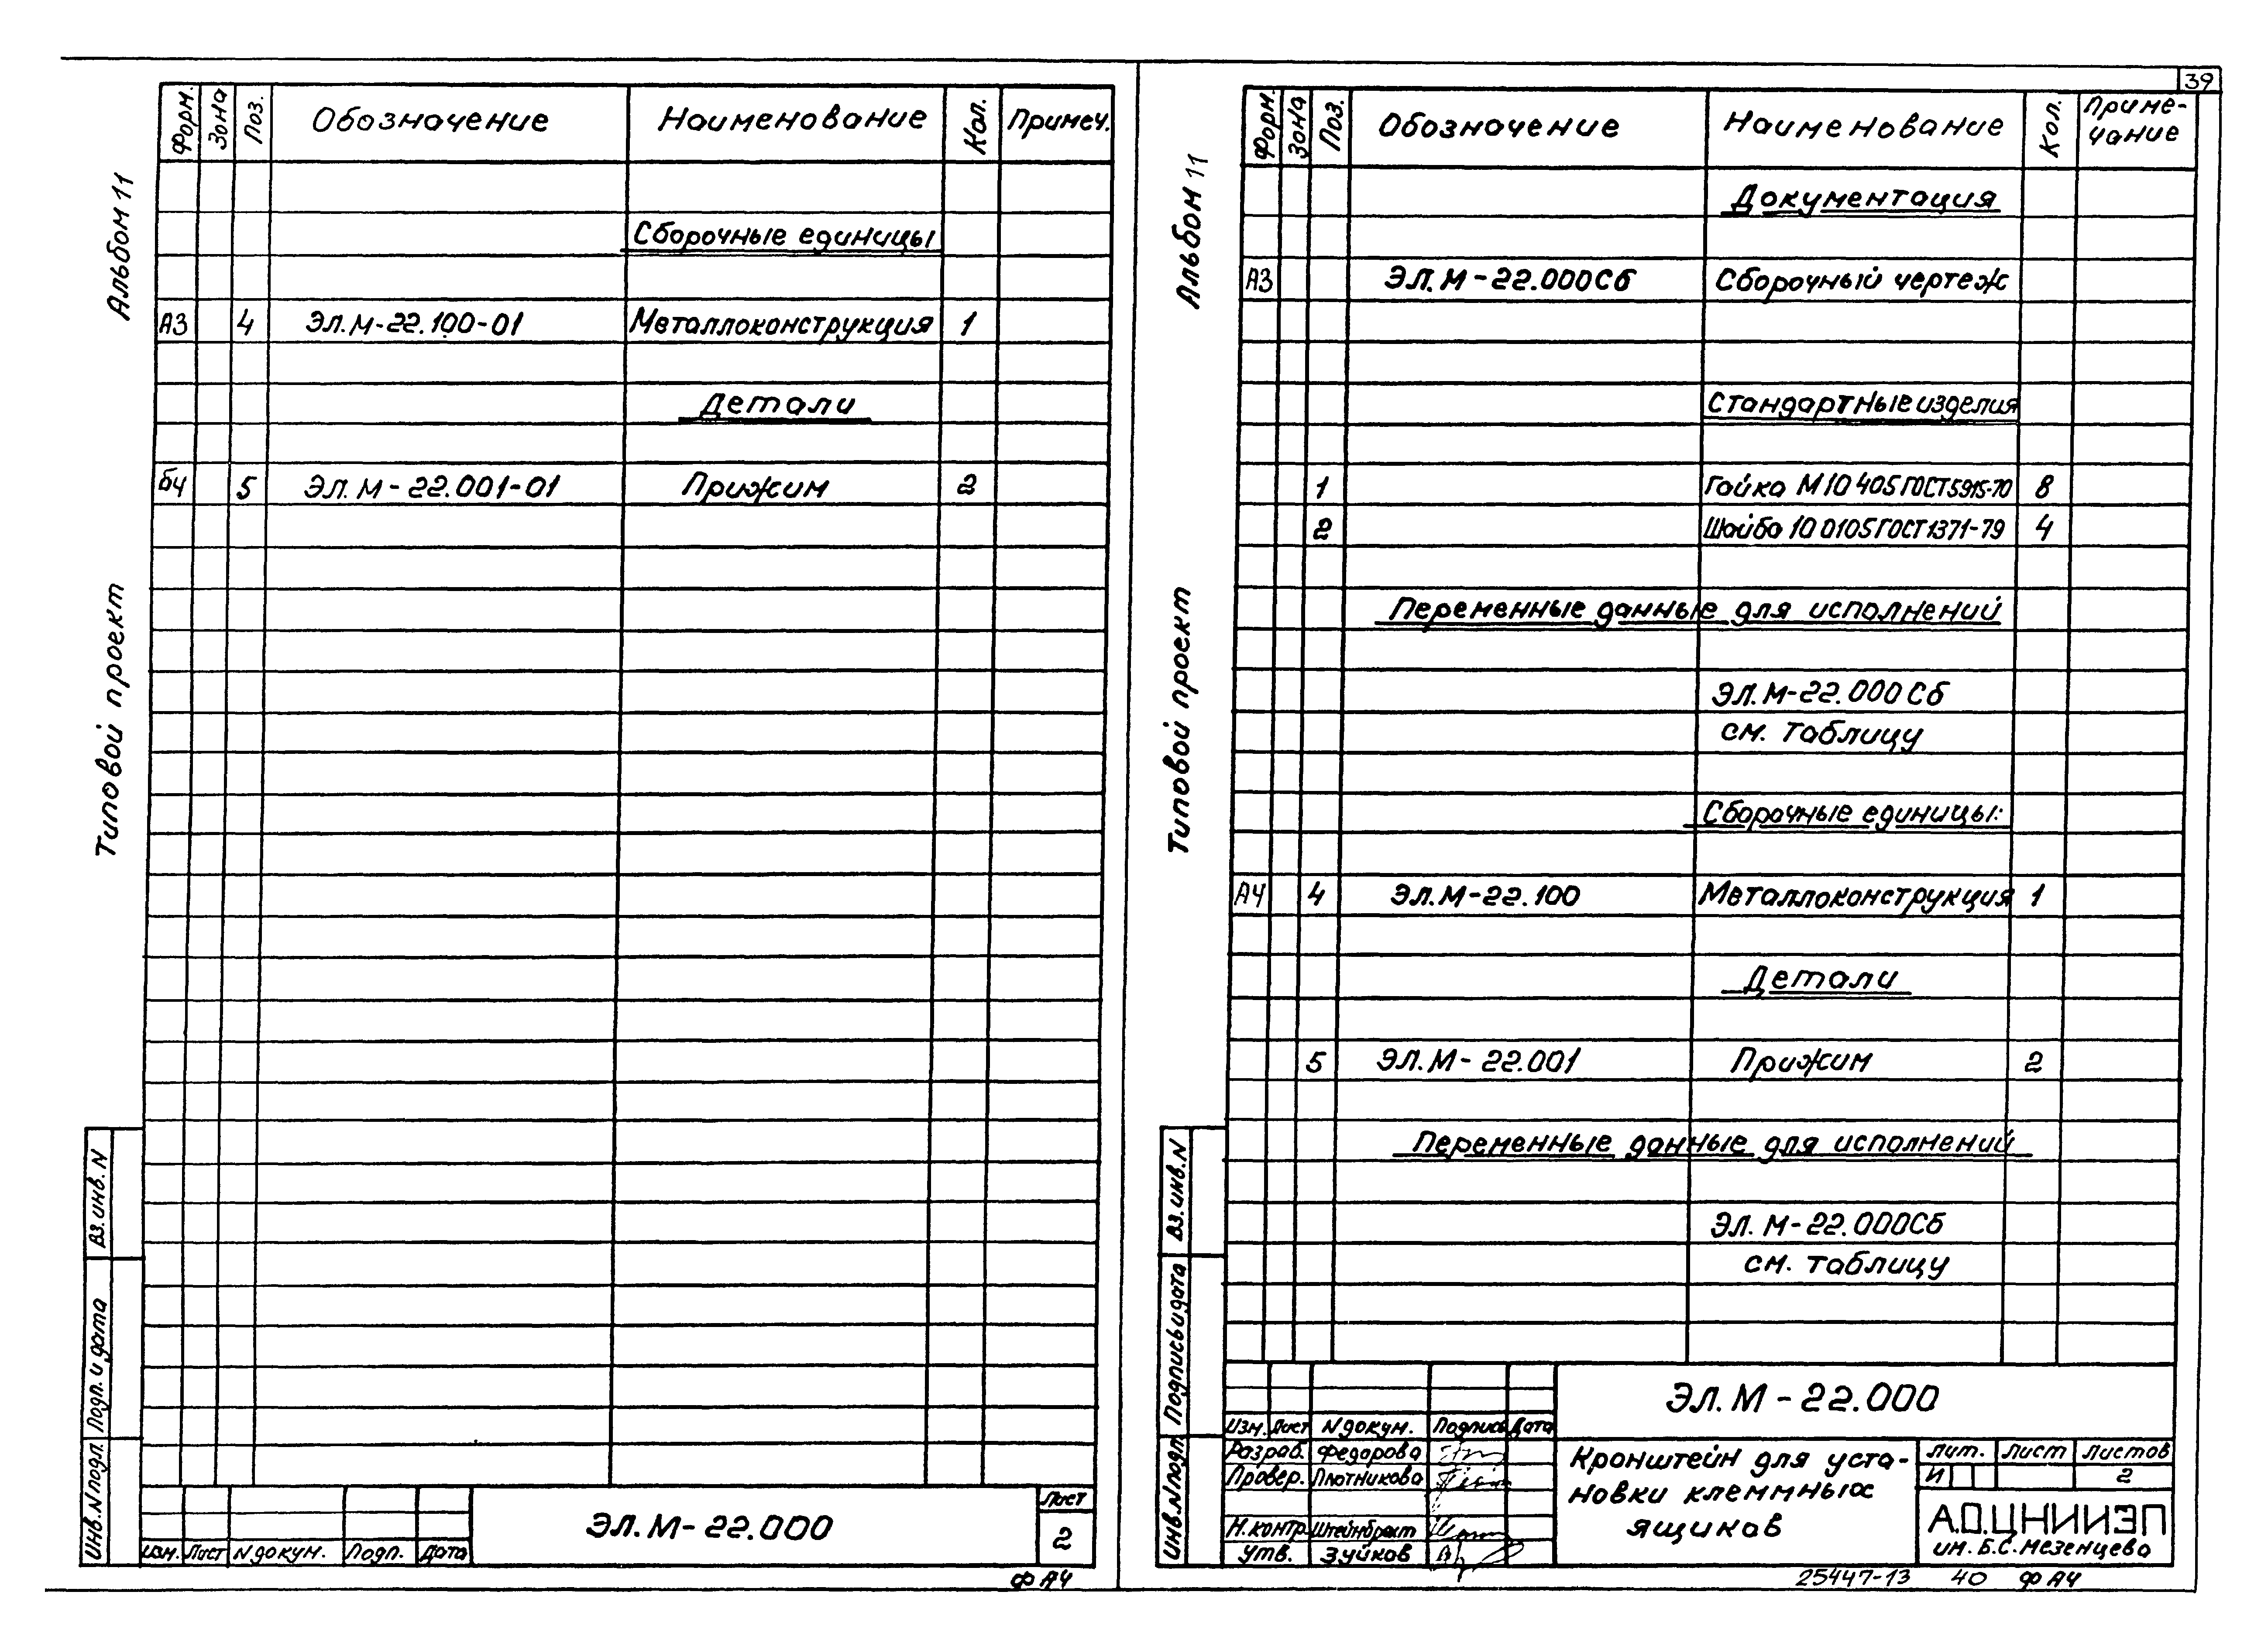 39
Альбом 11
Типовой проект
Форм. Зона Поз. Обозначение Наименование Кол. Примеч.
Сборочные единицы
А3 4 ЭЛ.М-22.100-01 Металлоконструкция 1
Детали
БЧ 5 ЭЛ.М-22.001-01 Прижим 2
Вз.инв.N
Подп. и дата
Инв.N подл.
Изм. Лист N докум. Подп. Дата
ЭЛ.М-22.000
Лист
2
Ф А4
Альбом 11
Типовой проект
Форм. Зона Поз. Обозначение Наименование Кол. Приме-
чание
Документация
А3 ЭЛ.М-22.000Сб Сборочный чертеж
Стандартные изделия
1 Гайка М10 405 ГОСТ5915-70 8
2 Шайба 10 0105 ГОСТ1371-79 4
Переменные данные для исполнений
ЭЛ.М-22.000Сб
см. таблицу
Сборочные единицы:
А4 4 ЭЛ.М-22.100 Металлоконструкция 1
Детали
5 ЭЛ.М-22.001 Прижим 2
Переменные данные для исполнений
ЭЛ.М-22.000Сб
см. таблицу
Вз.инв.N
Подпись и дата
Инв.N подл
ЭЛ.М-22.000
Изм. Лист N докум. Подпись Дата
Разраб. Федарова
Провер. Плотникова
Н.контр. Штейнбрехт
Утв. Зуйков
Кронштейн для уста-
новки клеммных
ящиков
Лит. Лист Листов
И 2
А.О.ЦНИИЭП
им. Б.С.Мезенцева
25447-13 40 Ф А4